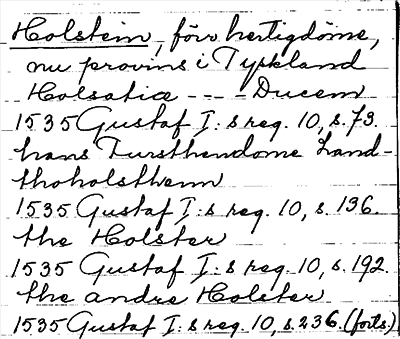 Holstein, förr hertigdöme,
nu provins i Tyskland
Holsatiæ - - - Ducem
1535 Gustaf I:s reg. 10, s. 73.
hans Furstthendome Land-
thoholsthenn
1535 Gustaf I:s reg. 10, s. 136.
the Holster
1535 Gustaf I:s reg. 10, s. 192.
the andre Holster
1535 Gustaf I:s reg. 10, s. 236. (forts.)